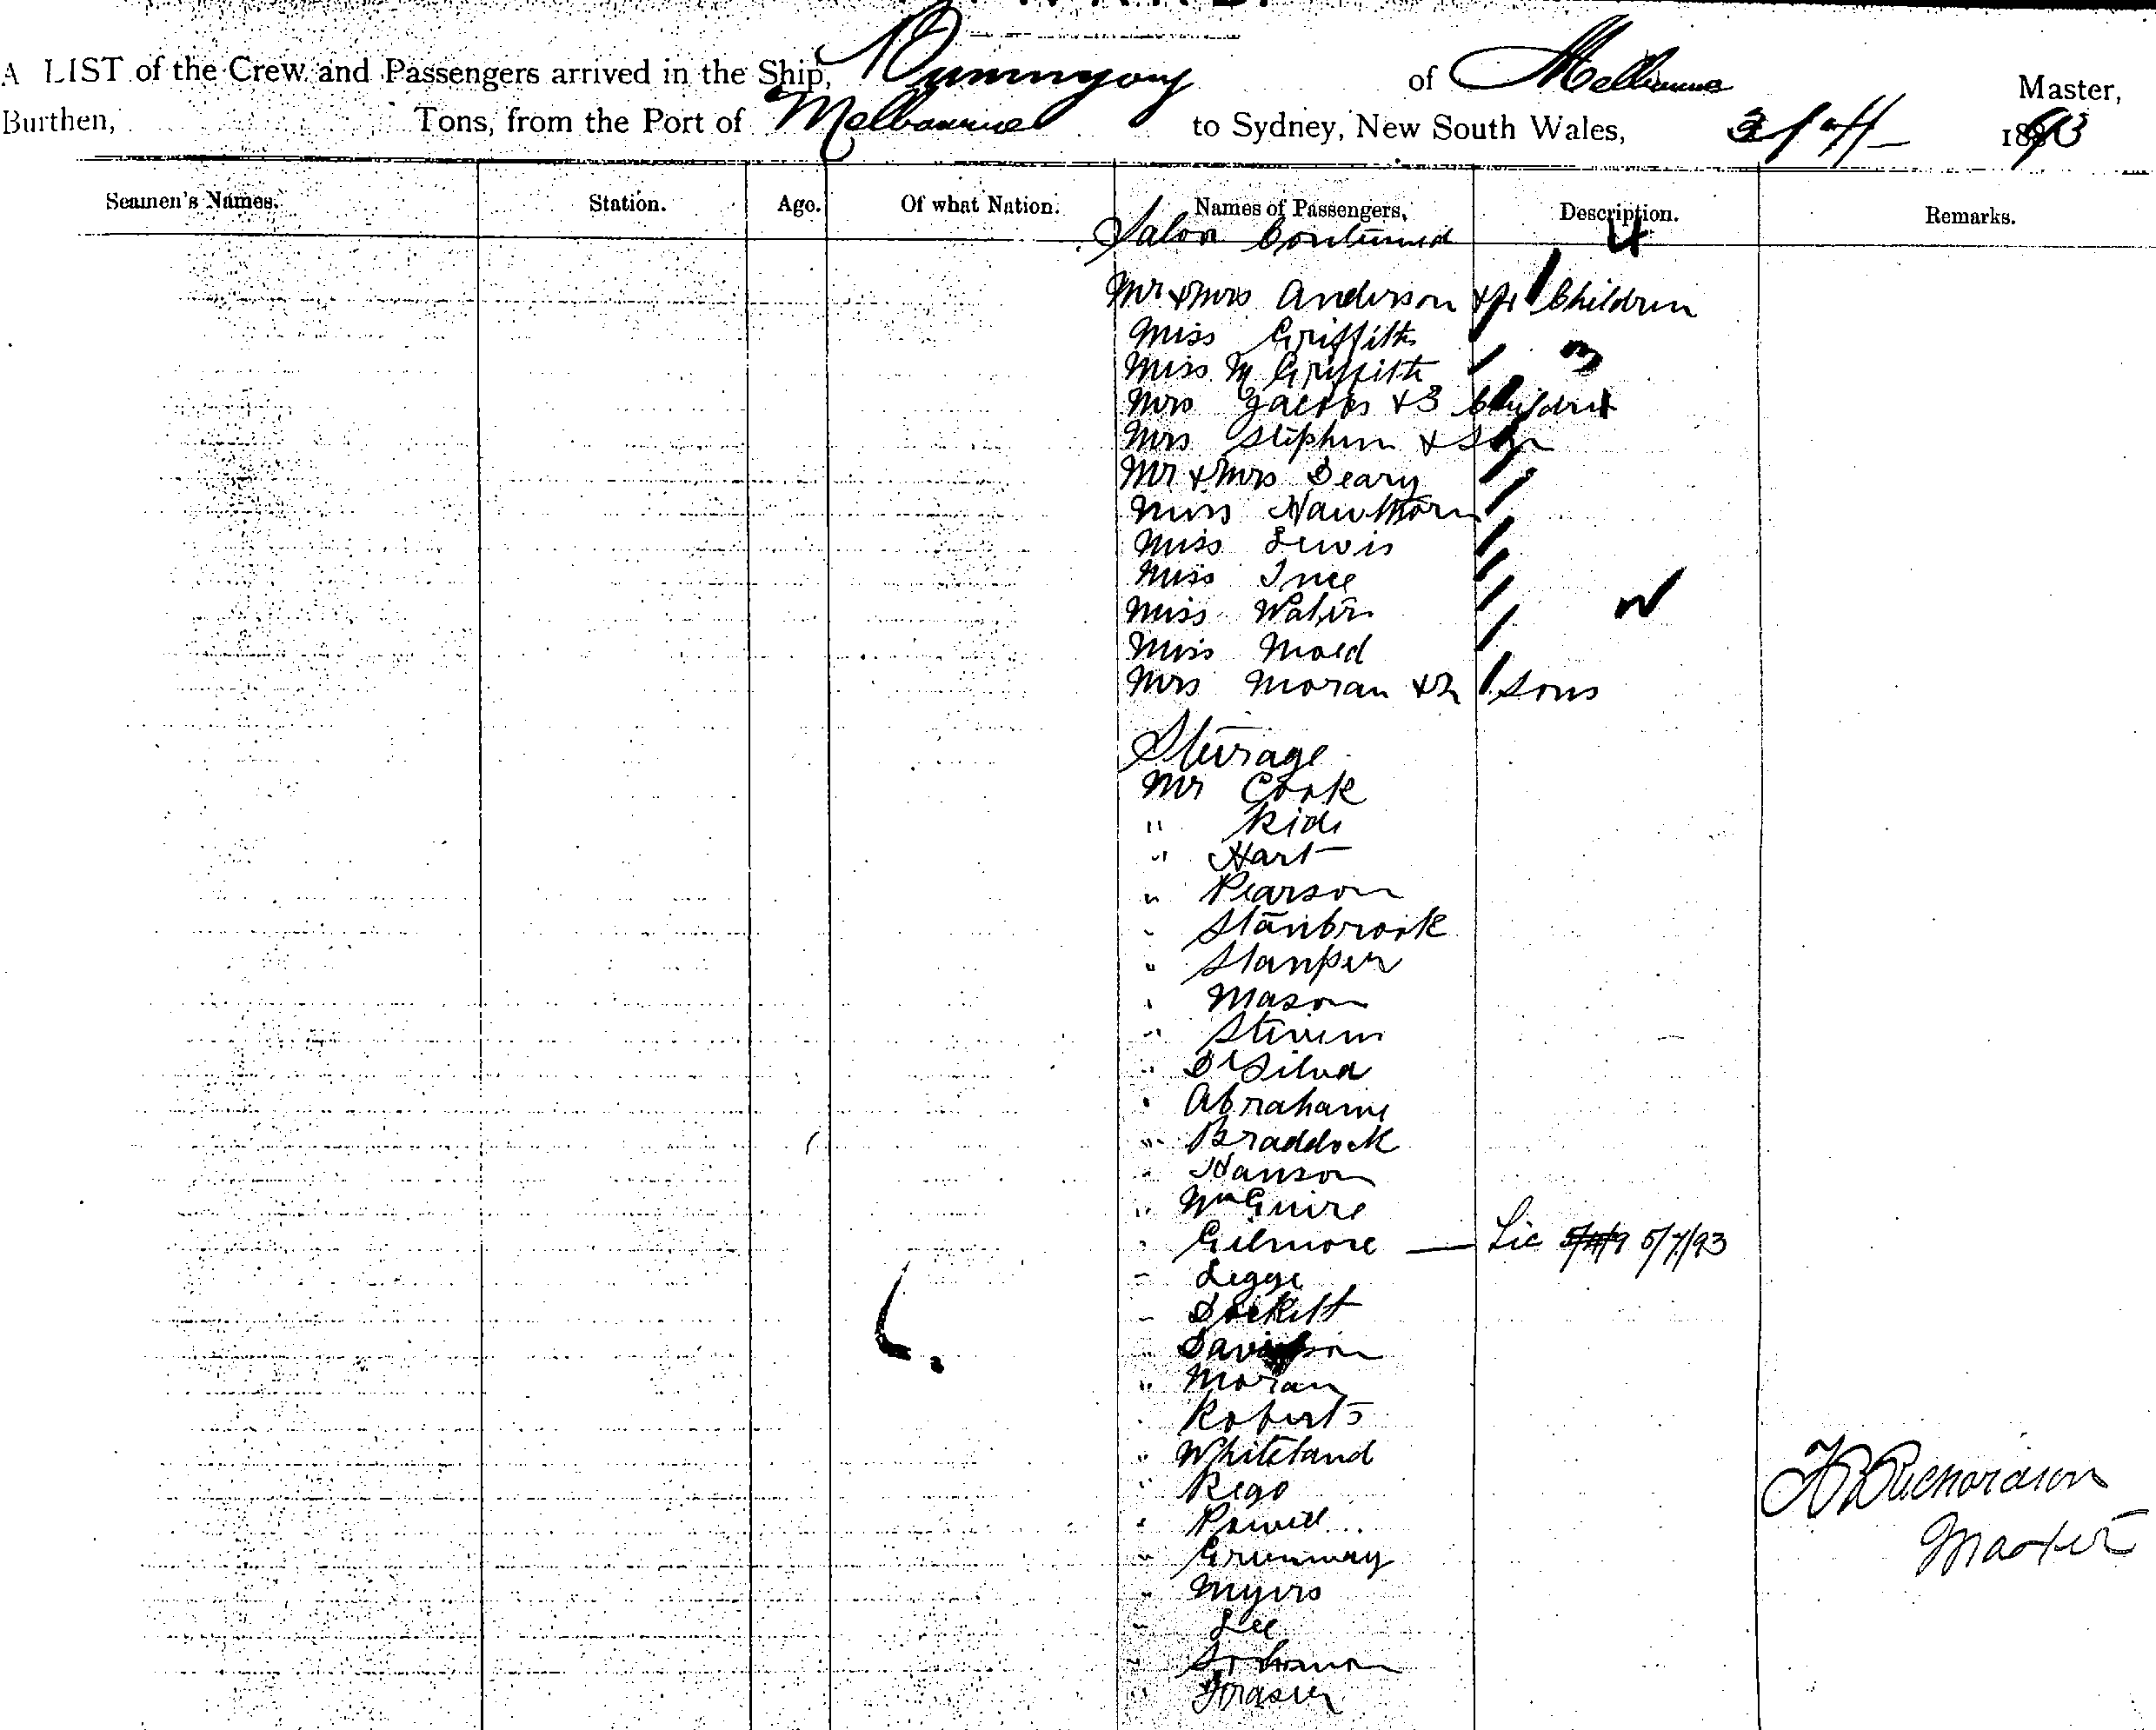 A LIST of the Crew and Passengers arrived in the Ship, of Melbourne Master,
Burthen, Tons, from the Port of Melbourne to Sydney, New South Wales, 1893
Seamen's Names. Station. Age. Of what Nation. Names of Passengers, Description. Remarks.
Saloon Continued 4
Mr & Mrs Anderson & Children
Miss Griffith
Miss M Griffith 3
Mrs Jacobs & 3 Children
Mrs Stephen & Son
Mr & Mrs Deary
Miss Hawthorn
Miss Lewis
Miss Ince
Miss
Miss
Mrs Moran & 2 Sons
Steerage
Mr Cook
" Kide
" Hart
" Pearson
" Stanbrook
" Stanper
" Mason
" Steven
" DeSilva
" Abrahams
" Braddock
" Hanson
" McGuire
" Gilmore — Lic 5/7/93
" Legge
" Dockett
" Davidson
" Moran
" Roberts
" Whiteland
" Rego
" Powell
" Grunway
" Myers
" Lee
" Solomon
" Frasier
Richardson
Master